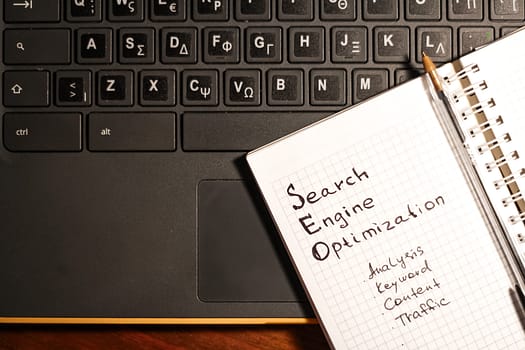 W ς E ε R T Y U Θ I O P
A S Σ D Δ F Φ G Γ H J Ξ K L Λ
< > Z X C Ψ V Ω B N M
ctrl alt
Search
Engine
Optimization
. Analysis
. Keyword
. Content
. Traffic